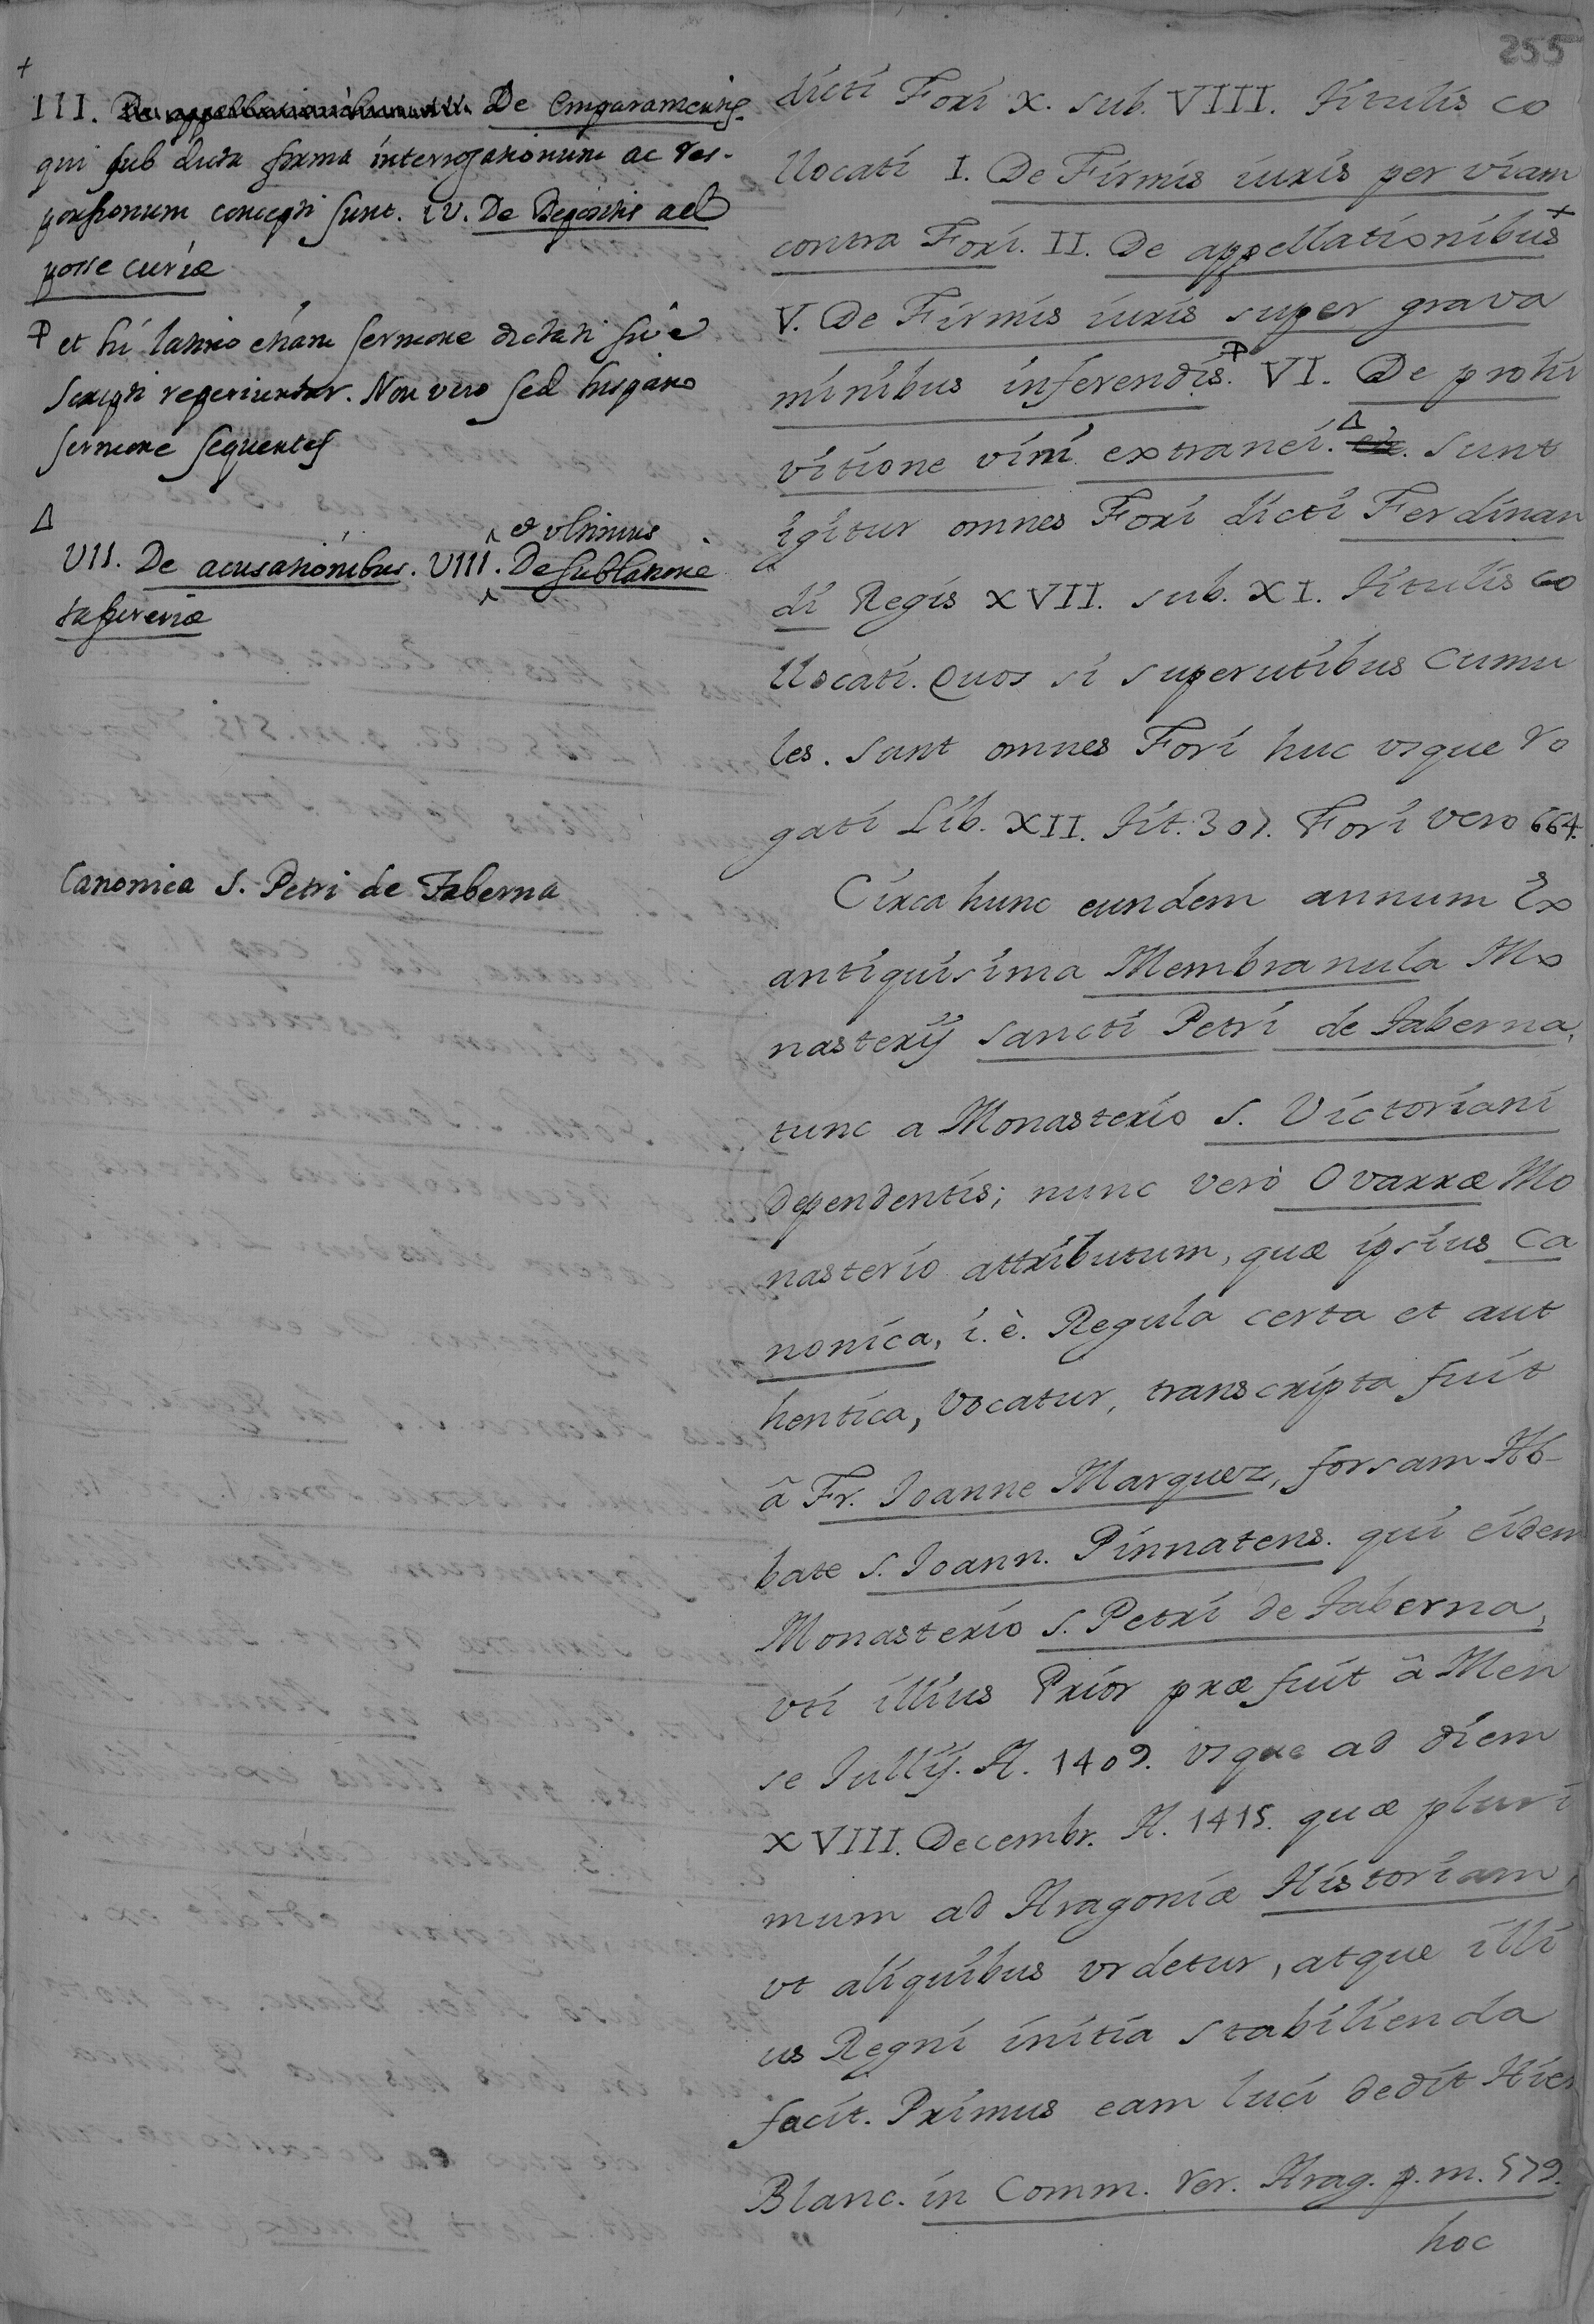 255
+
III. De Emparamentis
qui sub dicta forma interrogationum ac res-
ponsionum concepti sunt. IV. De Depositis
posse curiæ
et hi latino etiam sermone dictati sive
scripti reperiuntur. Non vero sed hispano
sermone sequentes
Δ
et ultimus
VII. De acusationibus. VIII. De sublatione
Canonica S. Petri de Taberna
dicti Fori X. sub. VIII. titulis co
llocati I. De Firmis iuris per viam
contra Fori. II. De appellationibus +
V. De Firmis iuris super grava
minibus inferendis. VI. De prohi
vitione vini extranei. Δ sunt
igitur omnes Fori dicti Ferdinan
di Regis XVII. sub. XI. titulis co
llocati. Quos si superutibus cumu
les. sunt omnes Fori huc usque ro
gati Lib. XII. tit. 307. Fori vero 664.
Circa hunc eundem annum Ex
antiquisima Membranula Mo
nasterij sancti Petri de Taberna,
tunc a Monasterio S. Victoriani
dependentis; nunc verò Ovarræ Mo
nasterio attributum, quæ ipsius Ca
nonica, i. è. Regula certa et aut
hentica, vocatur, transcripta fuit
â Fr. Ioanne Marquez, forsam Ab-
bate S. Ioann. Pinnatens. qui eidem
Monasterio S. Petri de Taberna,
vti illius Prior præfuit â Men
se Iullij. A. 1409. usque ad diem
XVIII. Decembr. A. 1415. quæ pluri
mum ad Aragoniæ Historiam,
vt aliquibus videtur, atque illi
us Regni initia stabilienda
facit. Primus eam luci dedit Hier
Blanc. in Comm. rer. Arag. p. m. 579.
hoc